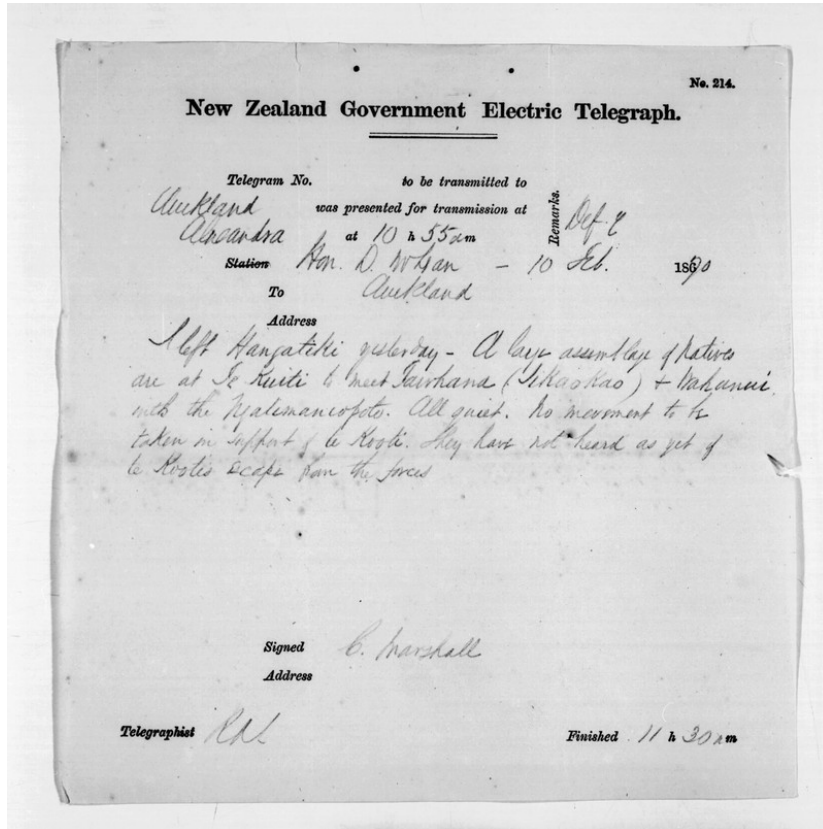 No. 214.
New Zealand Government Electric Telegraph.
Telegram No. to be transmitted to
Auckland was presented for transmission at
Alexandra at 10 h 55 am
Remarks.
Station Hon. D. McLean – 10 Feb. 1870
To Auckland
Address
I left Hangatiki yesterday – A large assemblage of Natives
are at Te Kuiti to meet Tawhana (Tikaokao) + Wahanui
with the Ngatimaniapoto. All quiet. No movement to be
taken in support of te Kooti. They have not heard as yet of
te Kootis escape from the forces
Signed C. Marshall
Address
Telegraphist
Finished 11 h 30 am